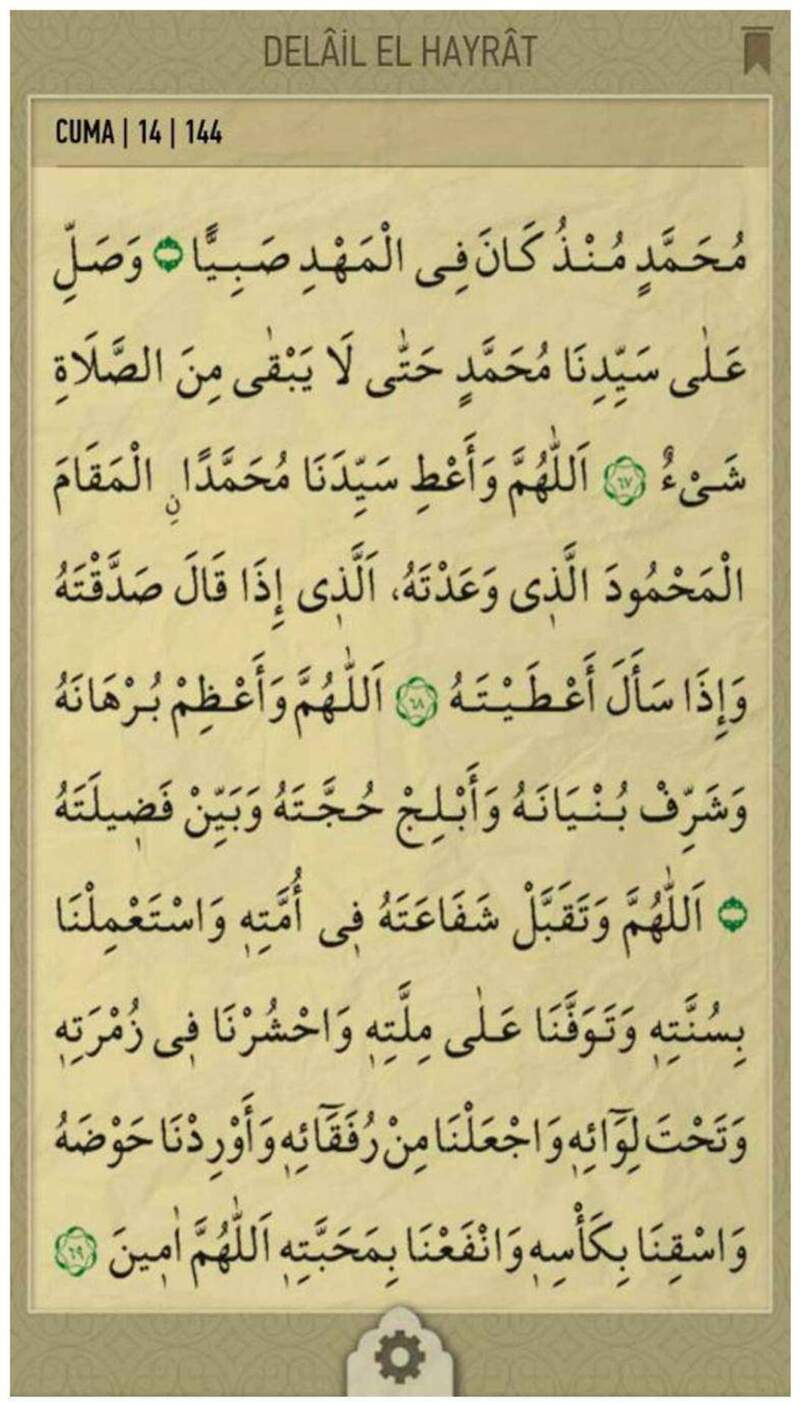 DELÂİL EL HAYRÂT
CUMA | 14 | 144
مُحَمَّدٍ مُنْذُ كَانَ فِى الْمَهْدِ صَبِيًّا وَصَلِّ
عَلٰى سَيِّدِنَا مُحَمَّدٍ حَتّٰى لَا يَبْقٰى مِنَ الصَّلَاةِ
شَىْءٌ ٦٧ اَللّٰهُمَّ وَأَعْطِ سَيِّدَنَا مُحَمَّدًا نِ الْمَقَامَ
الْمَحْمُودَ الَّذٖى وَعَدْتَهُ، اَلَّذٖى إِذَا قَالَ صَدَّقْتَهُ
وَإِذَا سَأَلَ أَعْطَيْتَهُ ٦٨ اَللّٰهُمَّ وَأَعْظِمْ بُرْهَانَهُ
وَشَرِّفْ بُنْيَانَهُ وَأَبْلِجْ حُجَّتَهُ وَبَيِّنْ فَضٖيلَتَهُ
اَللّٰهُمَّ وَتَقَبَّلْ شَفَاعَتَهُ فٖى أُمَّتِهٖ وَاسْتَعْمِلْنَا
بِسُنَّتِهٖ وَتَوَفَّنَا عَلٰى مِلَّتِهٖ وَاحْشُرْنَا فٖى زُمْرَتِهٖ
وَتَحْتَ لِوَٓائِهٖ وَاجْعَلْنَا مِنْ رُفَقَٓائِهٖ وَأَوْرِدْنَا حَوْضَهُ
وَاسْقِنَا بِكَأْسِهٖ وَانْفَعْنَا بِمَحَبَّتِهٖ اَللّٰهُمَّ اٰمٖينَ ٦٩